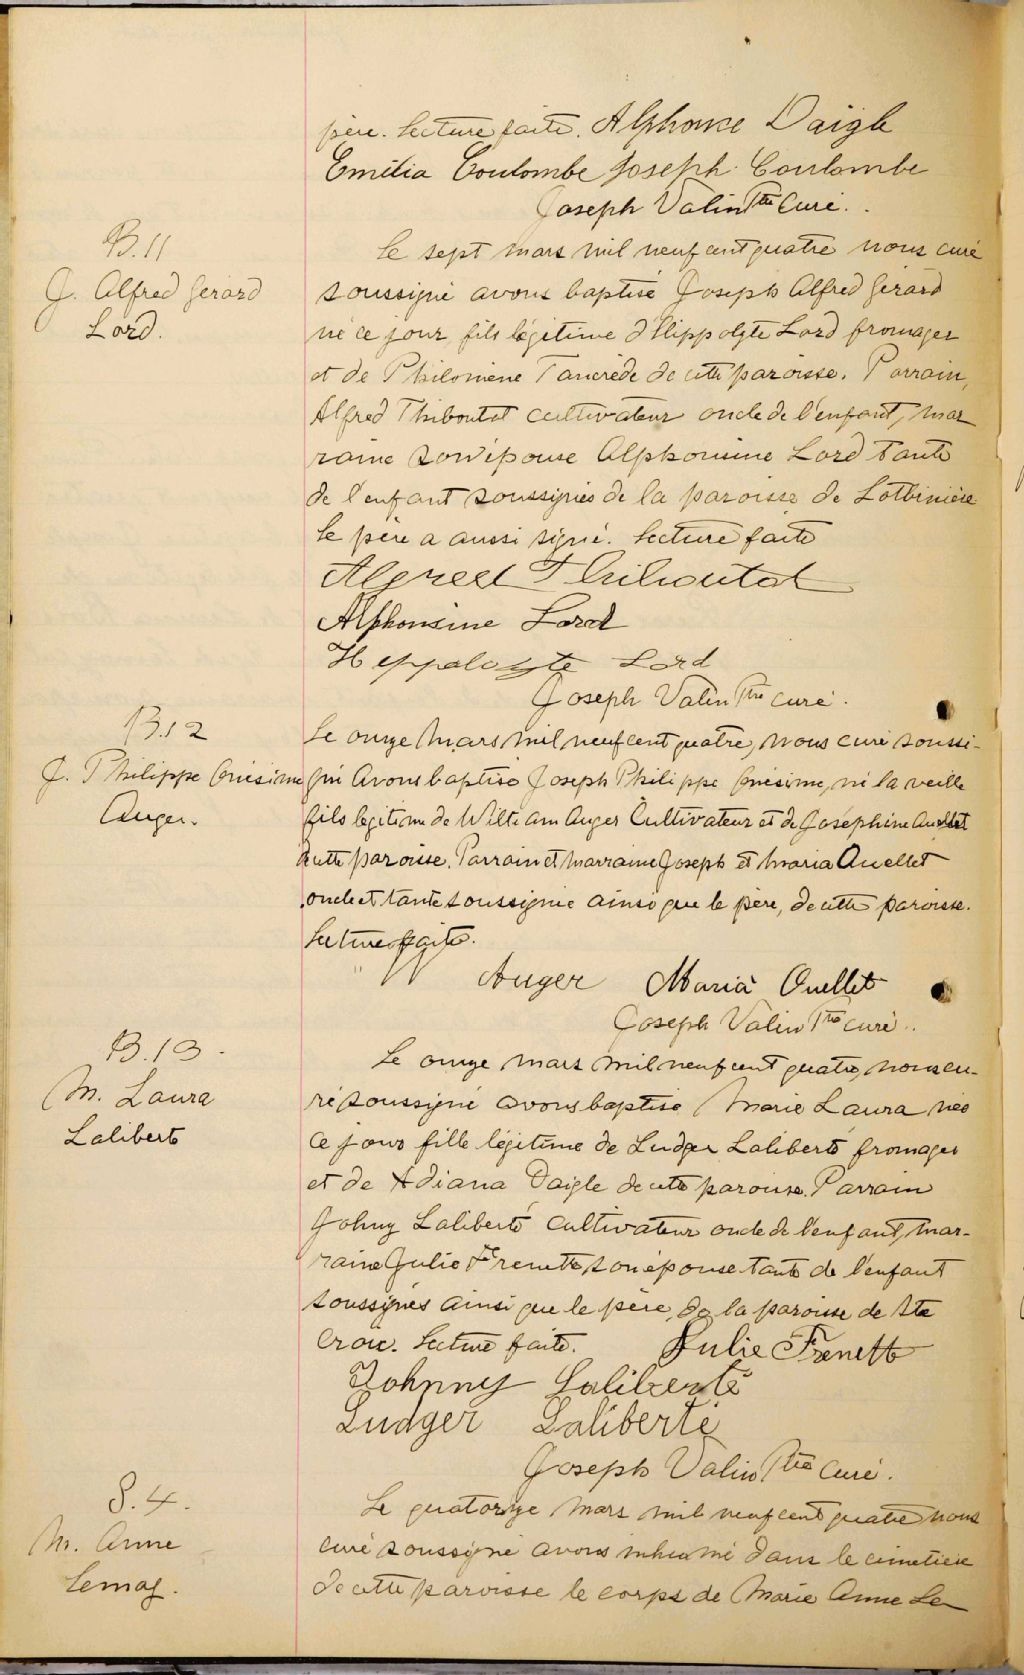 père. Lecture faite. Alphonse Daigle
Emilia Coulombe Joseph Coulombe
Joseph Valin Ptre Curé.
B.11
J. Alfred Gérard
Lord.
Le sept mars mil neuf cent quatre nous curé
soussigné avons baptisé Joseph Alfred Gérard
né ce jour, fils légitime d'Hippolyte Lord fromager
et de Philomène Tancrède de cette paroisse. Parrain,
Alfred Thiboutot cultivateur oncle de l'enfant, mar
raine son épouse Alphonsine Lord tante
de l'enfant soussignés de la paroisse de Lotbinière
Le père a aussi signé. Lecture faite
Alfred Thiboutot
Alphonsine Lord
Heppoloyte Lord
Joseph Valin Ptre curé.
B.12
J. Philippe Onésime
Auger.
Le onze mars mil neuf cent quatre, nous curé soussi-
gné avons baptisé Joseph Philippe Onésime, né la veille
fils légitime de William Auger Cultivateur et de Joséphine Ouellet
de cette paroisse. Parrain et marraine Joseph et Maria Ouellet
oncle et tante soussignée ainsi que le père, de cette paroisse.
Lecture faite.
Auger Maria Ouellet
Joseph Valin Ptre curé.
B.13
M. Laura
Laliberté
Le onze mars mil neuf cent quatre, nous cu-
ré soussigné avons baptisé Marie Laura née
ce jour fille légitime de Ludger Laliberté fromager
et de Adiana Daigle de cette paroisse. Parrain
Johny Laliberté cultivateur oncle de l'enfant, mar-
raine Julie Frenette son épouse tante de l'enfant
soussignés ainsi que le père, de la paroisse de Ste
Croix. Lecture faite. Julie Frenette
Johnny Laliberté
Ludger Laliberté
Joseph Valin Ptre Curé.
S. 4.
M. Anne
Lemay.
Le quatorze mars mil neuf cent quatre nous
curé soussigné avons inhumé dans le cimetière
de cette paroisse le corps de Marie Anne Le